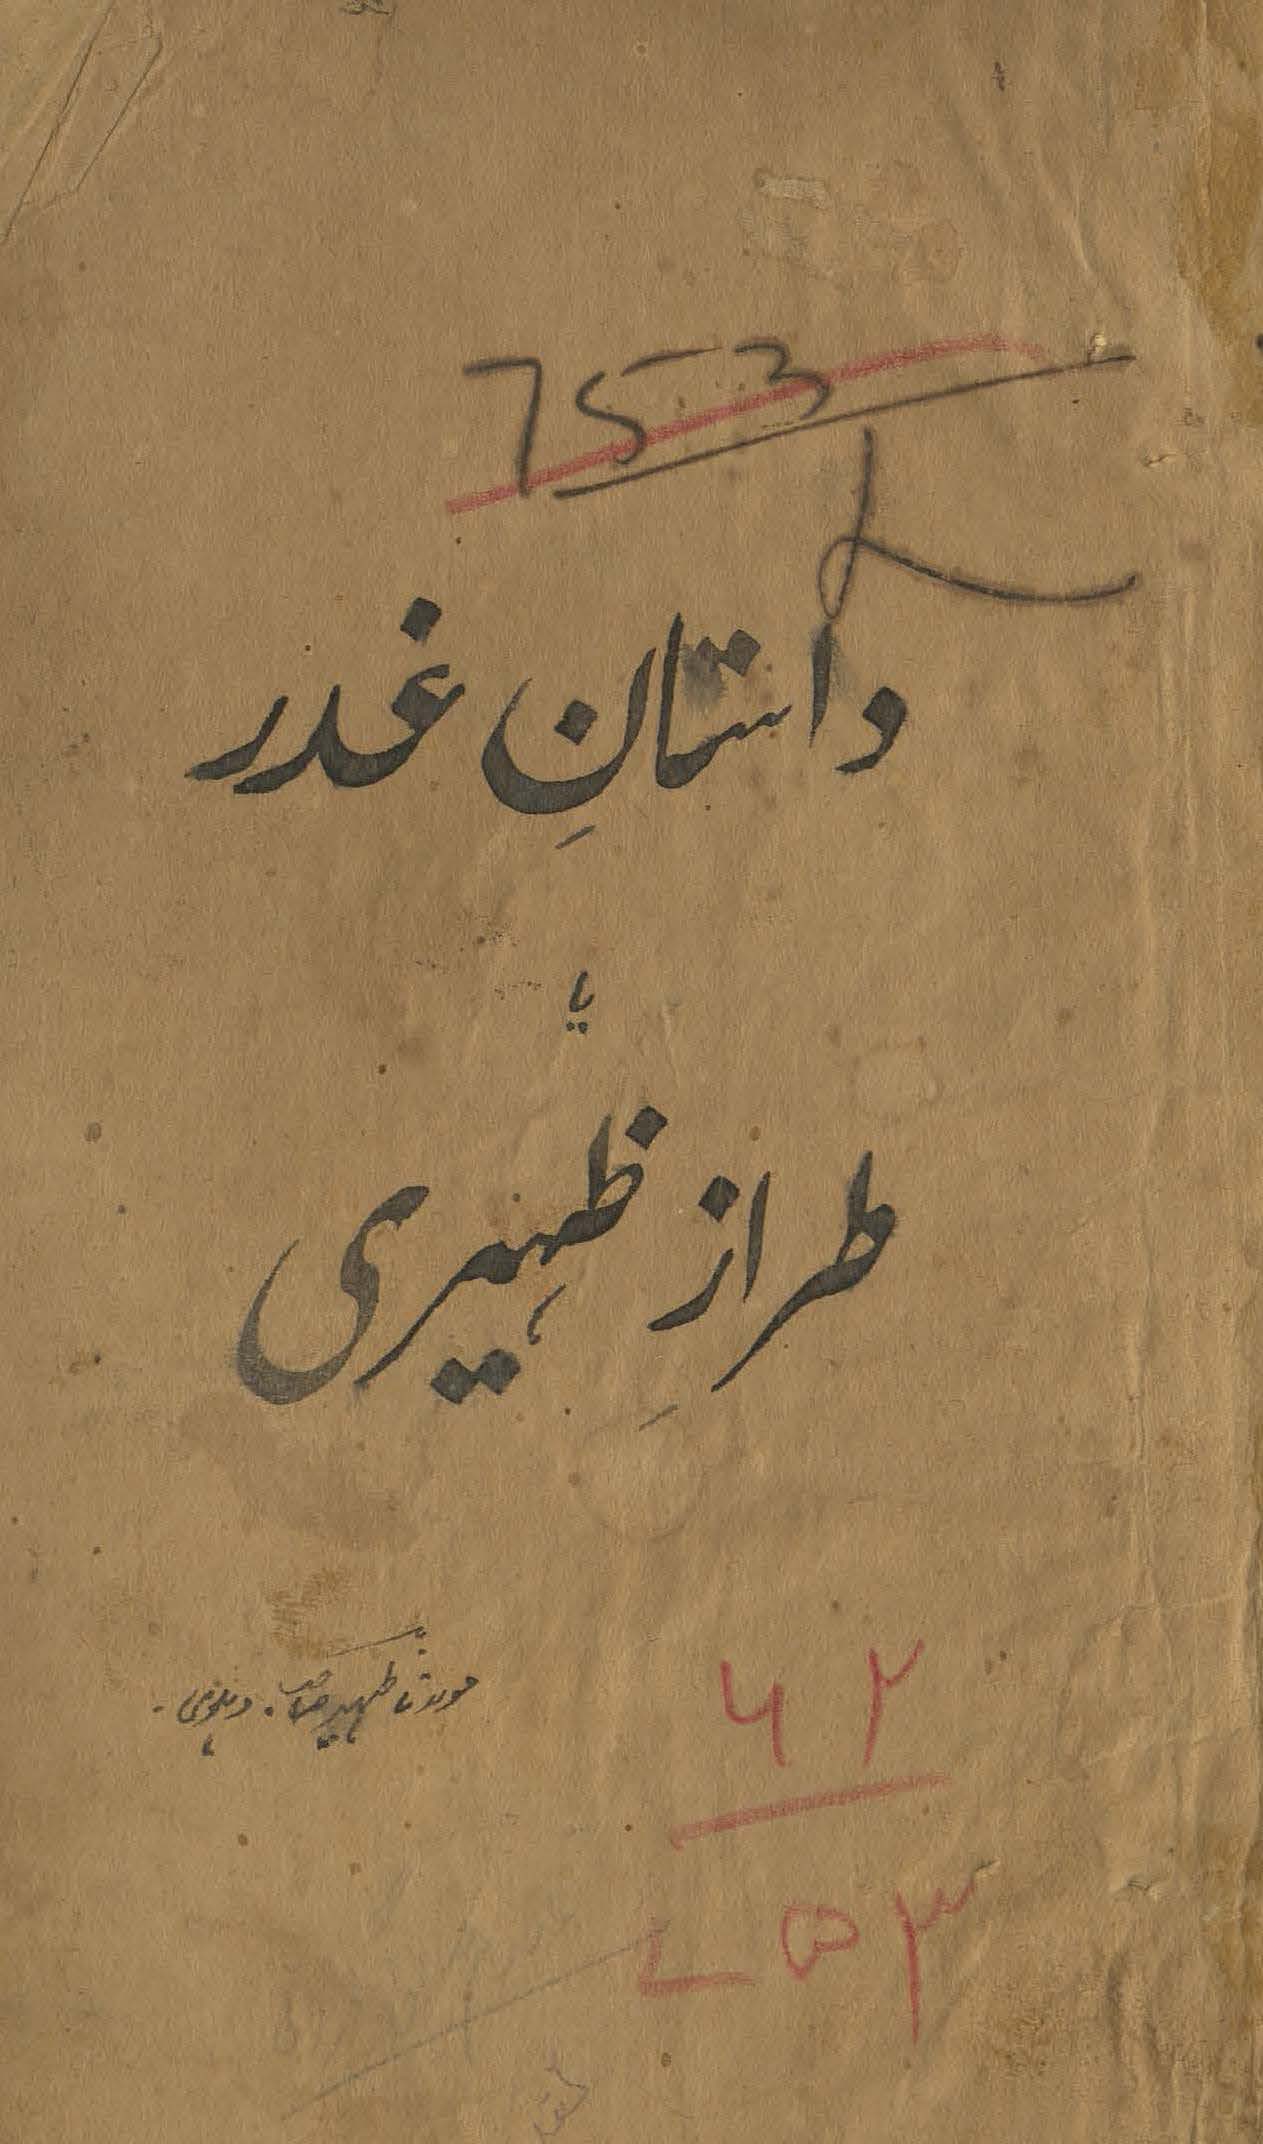 753
داستانِ غدر
یا
طرازِ ظہیری
مولانا ظہیر صاحب دہلوی۔
۶۲
۷۵۳